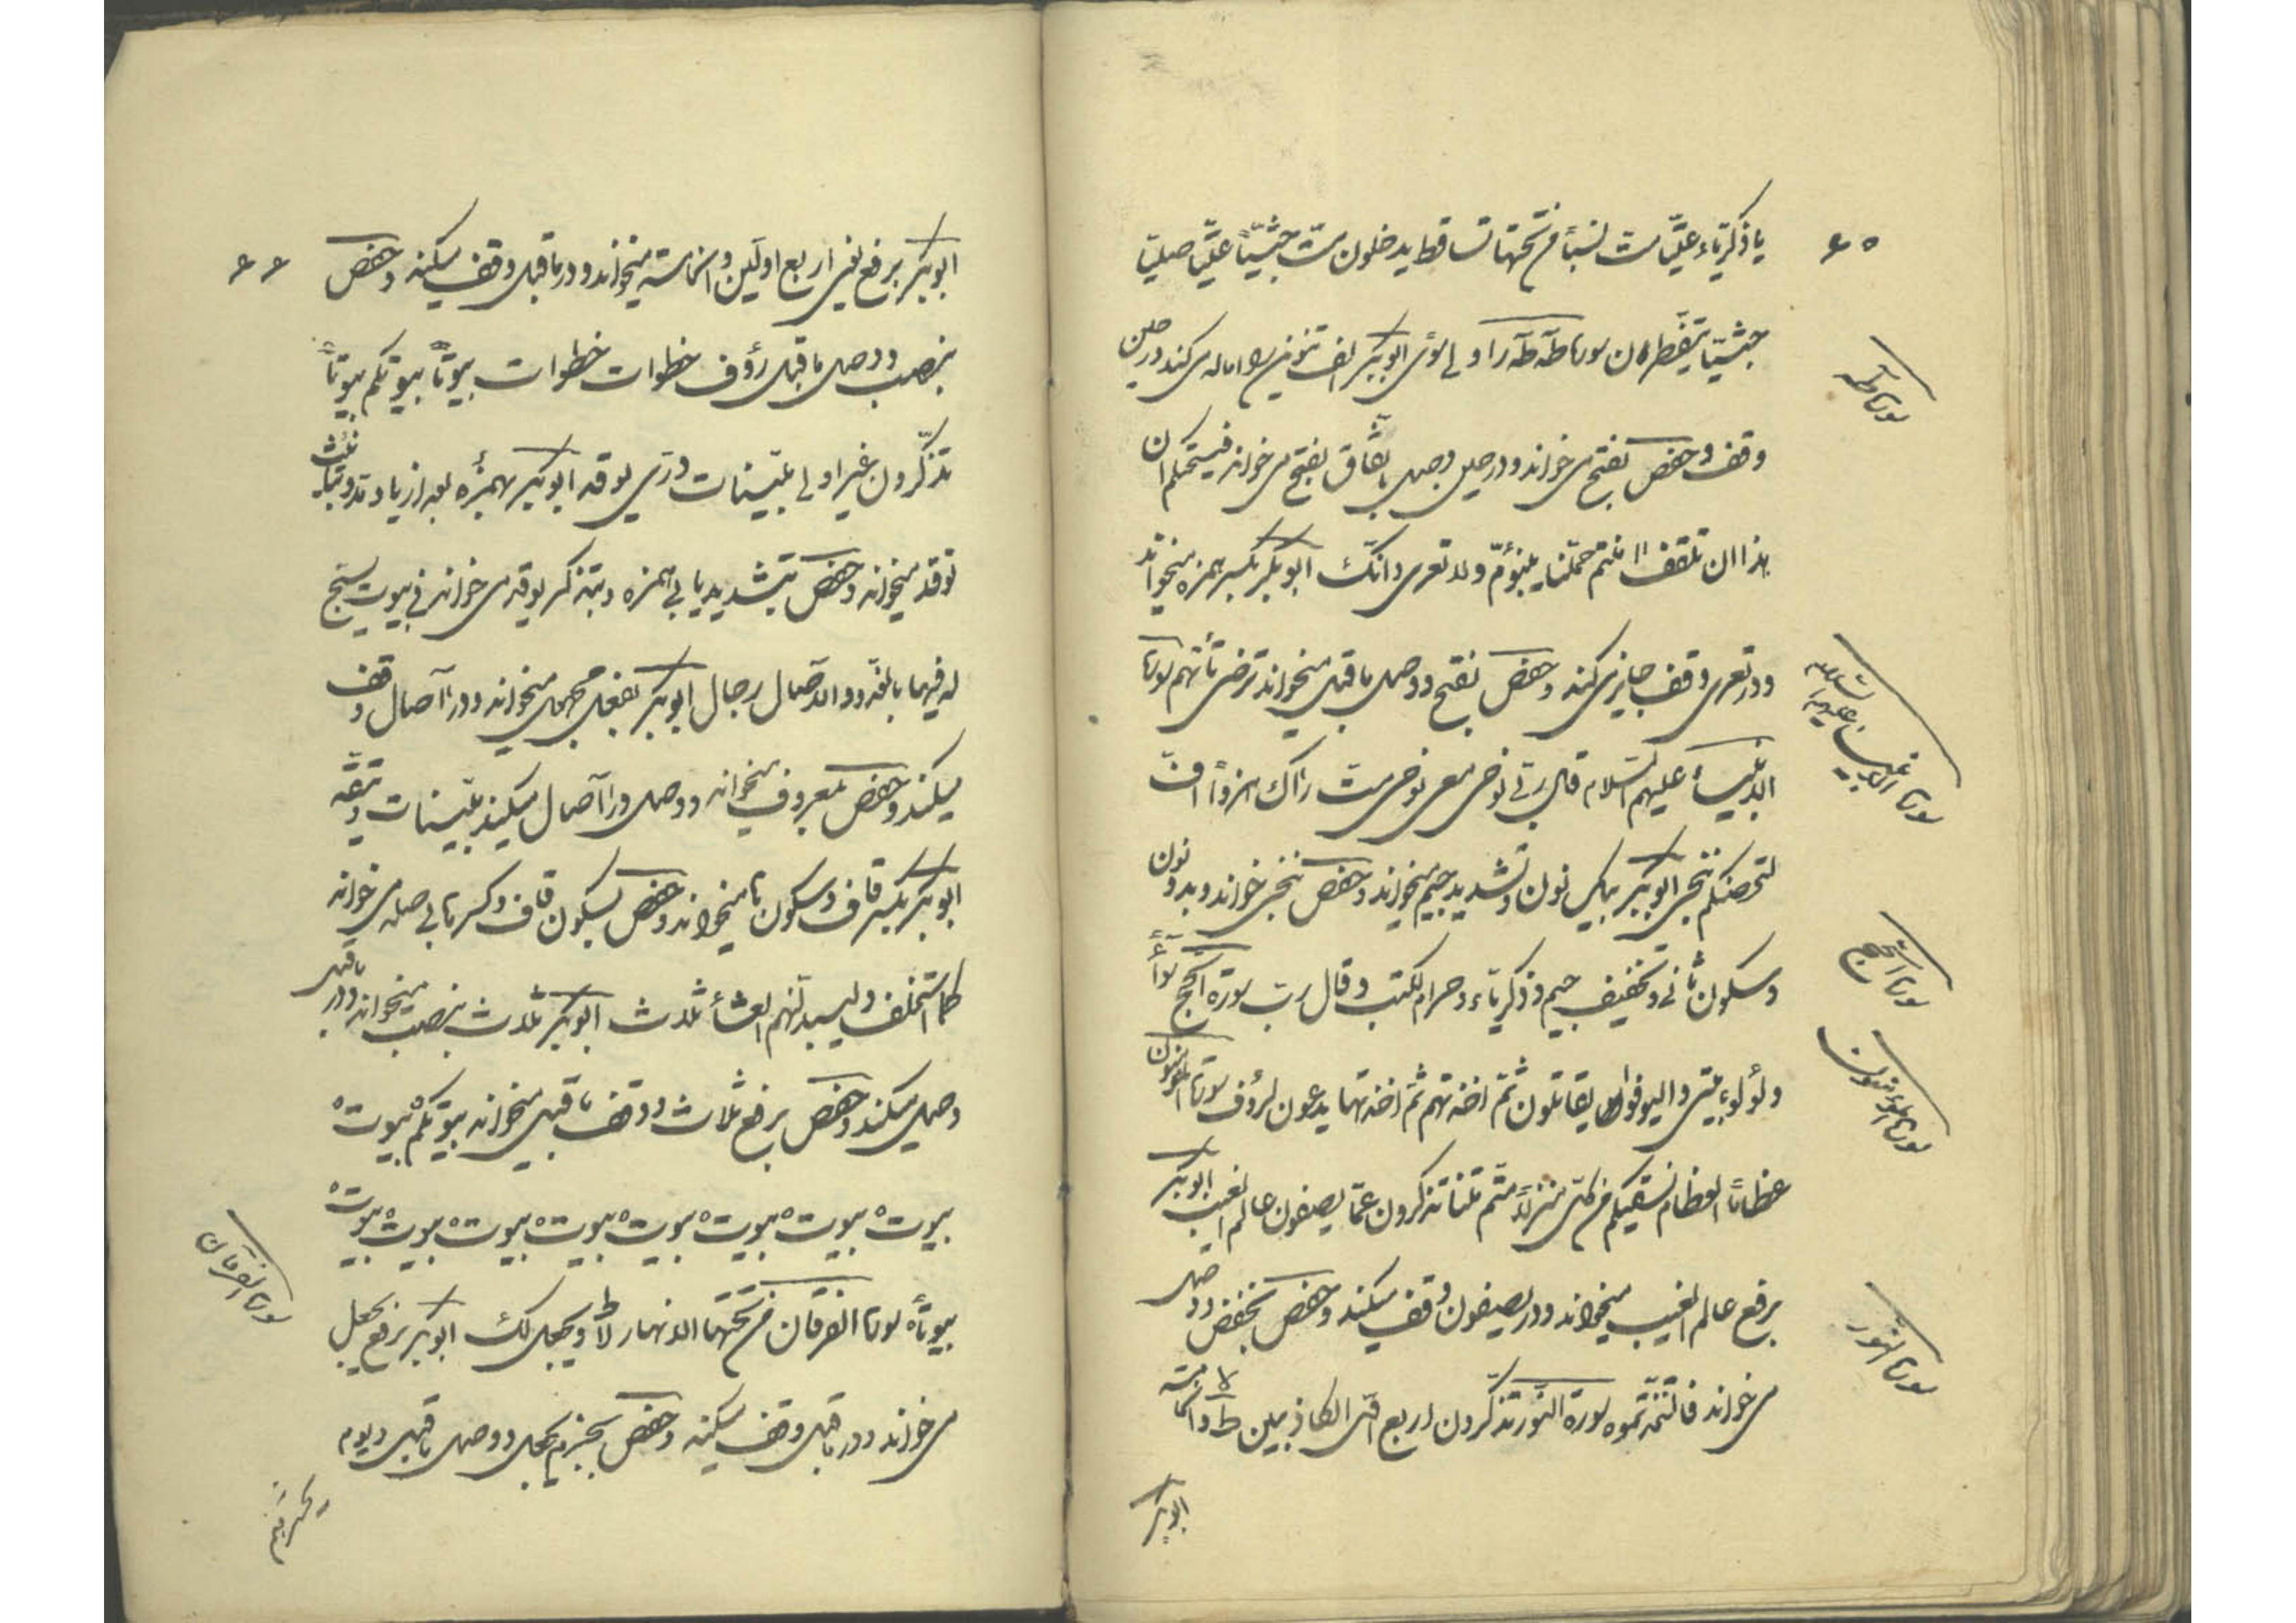 ۶۵
یا ذکریاء علیّا مت نسیا من تحتها تساقط یدخلون مت جثیّا علیّا صلیّا
جثیّا یتفطرن سورة طه طه را و لی سوی ابوبکر الف تنوین را اماله می کند در حین
سورة طه
وقف و حفص بفتح می خواند و در حین وصل باتفاق بفتح می خواند فیسحتکم ان
هذا ان تلقف امنتم حملنا یبنؤمّ ولا تعری وانّک ابوبکر بکسر همزه میخواند
و در تعری وقف جایز می کند و حفص بفتح و وصل ماقبل میخواند ترضی تأتهم سورة
سورة الانبیاء علیهم السلام
الانبیاء علیهم السلام قال ربّی نوحی معی نوحی مت راک هزوا افّ
لتحصنکم ننجی ابوبکر بیک نون و تشدید جیم میخواند و حفص ننجی خواند و بدو نون
و سکون ثانی و تخفیف جیم و ذکریاء و حرام للکتب و قال رب سورة الحج سواء
سورة الحج
ولؤلؤا بیتی والیوفوا یقاتلون ثمّ اخذتهم ثم اخذتها یدعون لرؤف سورة المؤمنون
سورة المؤمنون
عظاما العظام نسقیکم من کلّ منزلا متّم متنا تذکرون عمّا یصفون عالم الغیب ابوبکر
برفع عالم الغیب میخواند و در یصفون وقف میکند و حفص بخفض و وصل
سورة النور
می خواند فاتخذتموه سورة النور تذکّرون اربع الکاذبین ط والخامسة
ابوبکر
۶۶
ابوبکر برفع یعنی اربع اولین و الخامسة میخواند و در ماقبل وقف میکند و حفص
بنصب و وصل ماقبل رؤف خطوات خطوات بیوتاً بیوتکم بیوتاً
تذکّرون غیر اولی مبیّنات درّی یوقد ابوبکر بهمزه بعد از یا و مد و بتأنیث
توقد میخواند و حفص بتشدید یا بی همزه و بتذکیر یوقد می خواند فی بیوت یسبح
له فیها بالغدو والاصال رجال ابوبکر بفعل مجهول میخواند و در آصال وقف
میکند و حفص بمعروف میخواند و وصل در آصال میکند مبیّنات و یتّقه
ابوبکر بکسر قاف و سکون ها میخواند و حفص بسکون قاف و کسر ها بی صله می خواند
کما استخلف ولیبدلنهم العشاء ثلاث ابوبکر ثلاث بنصب میخواند و در ماقبل
وصل میکند و حفص برفع ثلاث و وقف ماقبل میخواند بیوتکم بیوت
بیوت بیوت بیوت بیوت بیوت بیوت بیوت بیوت
بیوتاً سورة الفرقان من تحتها الانهار لا ویجعل لک ابوبکر برفع یجعل
سورة الفرقان
می خواند و در ماقبل وقف میکند و حفص بجزم یجعل و وصل ماقبل و یوم
یحشرهم